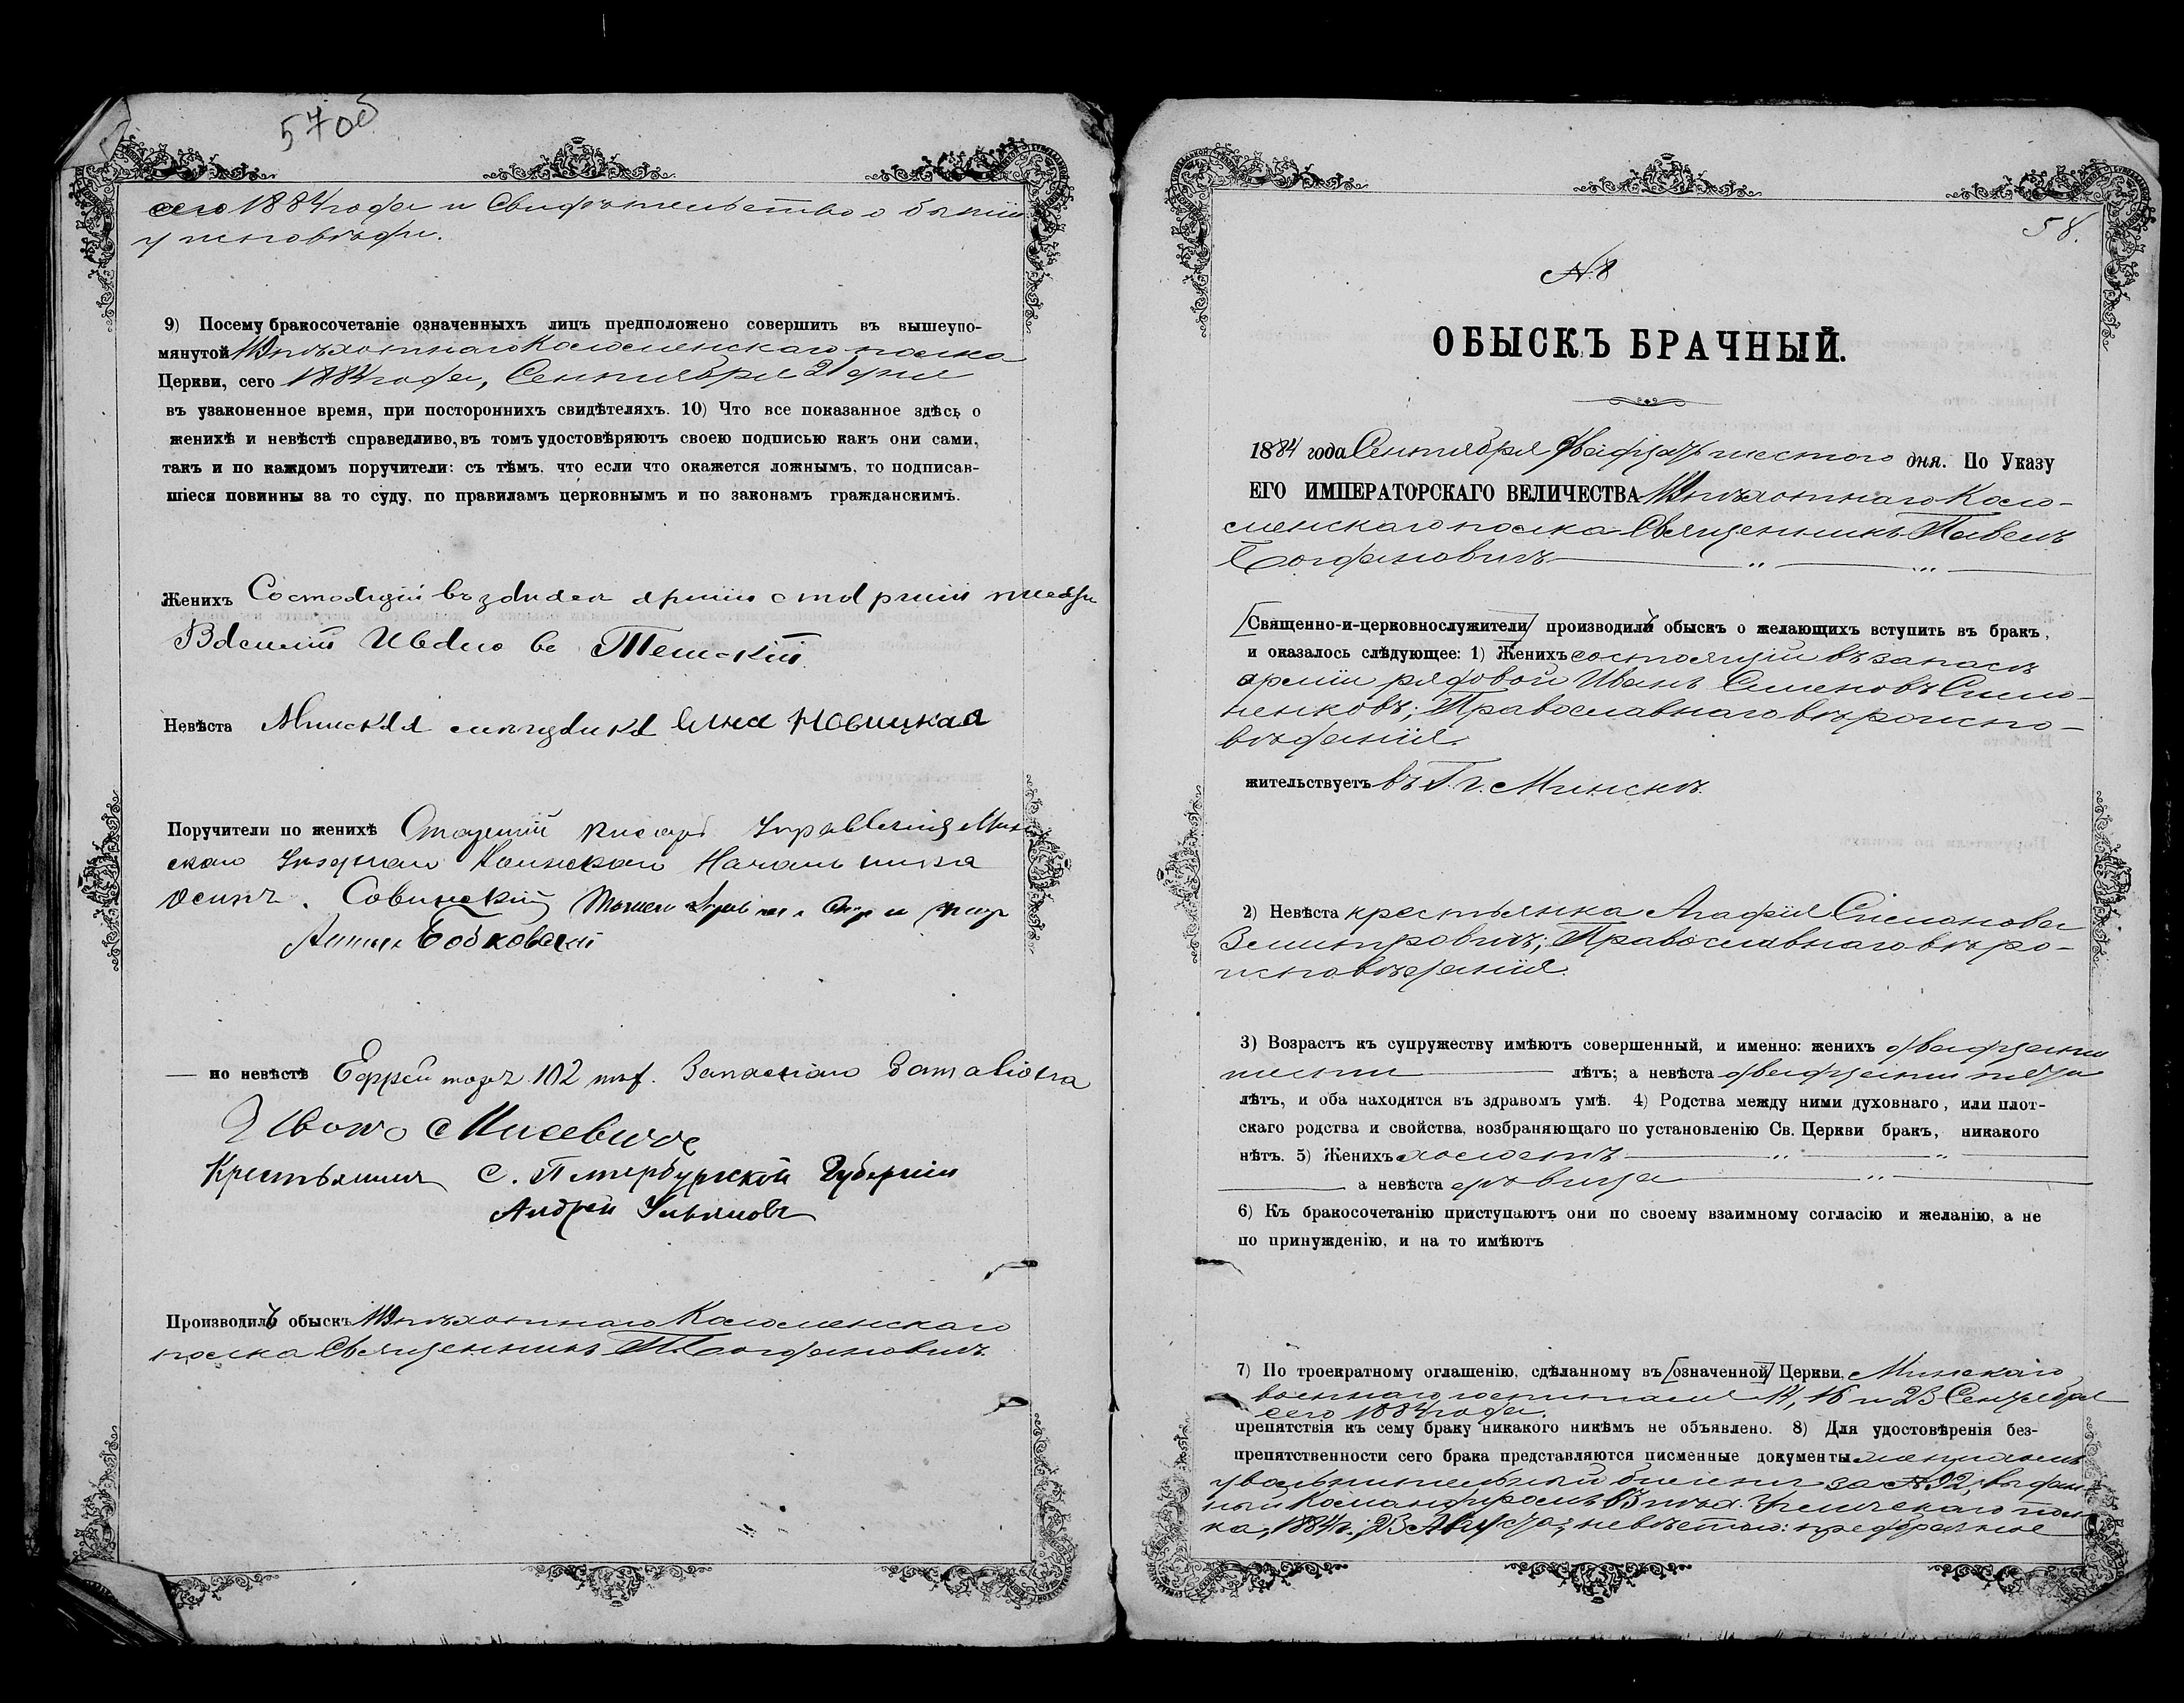 57 об
сего 1884 года и Свидѣтельство о бытіи
у исповѣди.
9) Посему бракосочетаніе означенныхъ лицъ предположено совершить въ вышеупо-
мянутой 119 пѣхотнаго Коломенскаго полка
Церкви, сего 1884 года, Сентября 21 дня
въ узаконенное время, при постороннихъ свидѣтеляхъ. 10) Что все показанное здѣсь о
женихѣ и невѣстѣ справедливо, въ томъ удостовѣряютъ своею подписью какъ они сами,
такъ и по каждомъ поручители: съ тѣмъ, что если что окажется ложнымъ, то подписав-
шіеся повинны за то суду, по правиламъ церковнымъ и по законамъ гражданскимъ.
Женихъ Состоящій въ запасѣ арміи старшій писарь
Василій Ивановъ
Невѣста Минская мѣщанка Анна Новицкая
Поручители по женихѣ Старшій писарь Управленія Мин
скаго Уѣзднаго Воинскаго Начальника
Осипъ Совинскій
Антонъ Бобковскій
— по невѣстѣ Ефрейторъ 102 пѣх. Запаснаго Баталіона
Крестьянинъ С. Петербургской Губерніи
Андрей Ульяновъ
Производилъ обыскъ 119 пѣхотнаго Коломенскаго
полка Священникъ П. Богдановичъ.
58.
№ 8
ОБЫСКЪ БРАЧНЫЙ.
1884 года Сентября двадцать шестого дня. По Указу
ЕГО ИМПЕРАТОРСКАГО ВЕЛИЧЕСТВА 119 пѣхотнаго Коло-
менскаго полка Священникъ Павелъ
Богдановичъ
[Священно-и-церковнослужители] производилъ обыскъ о желающихъ вступить въ бракъ,
и оказалось слѣдующее: 1) Женихъ состоящій въ запасѣ
арміи рядовой Иванъ Семеновъ Симо-
ненковъ; Православнаго вѣроиспо-
вѣданія.
жительствуетъ въ Г. г. Минскѣ.
2) Невѣста крестьянка Агафія Симонова
Змитровичъ; Православнаго вѣро-
исповѣданія.
3) Возрастъ къ супружеству имѣютъ совершенный, и именно: женихъ двадцати
шести лѣтъ; а невѣста двадцати пяти
лѣтъ, и оба находятся въ здравомъ умѣ. 4) Родства между ними духовнаго, или плот-
скаго родства и свойства, возбраняющаго по установленію Св. Церкви бракъ, никакого
нѣтъ. 5) Женихъ холостъ
а невѣста дѣвица
6) Къ бракосочетанію приступаютъ они по своему взаимному согласію и желанію, а не
по принужденію, и на то имѣютъ
7) По троекратному оглашенію, сдѣланному въ [означенной] Церкви, Минскаго
военнаго госпиталя 14, 16 и 23 Сентября
сего 1884 года.
препятствія къ сему браку никакого никѣмъ не объявлено. 8) Для удостовѣренія без-
препятственности сего брака представляются писменные документы женихомъ
увольнительный билетъ за № 92, выдан-
ный Командиромъ пѣх. полка,
1884 г. 23 Августа; невѣстою: предбрачное